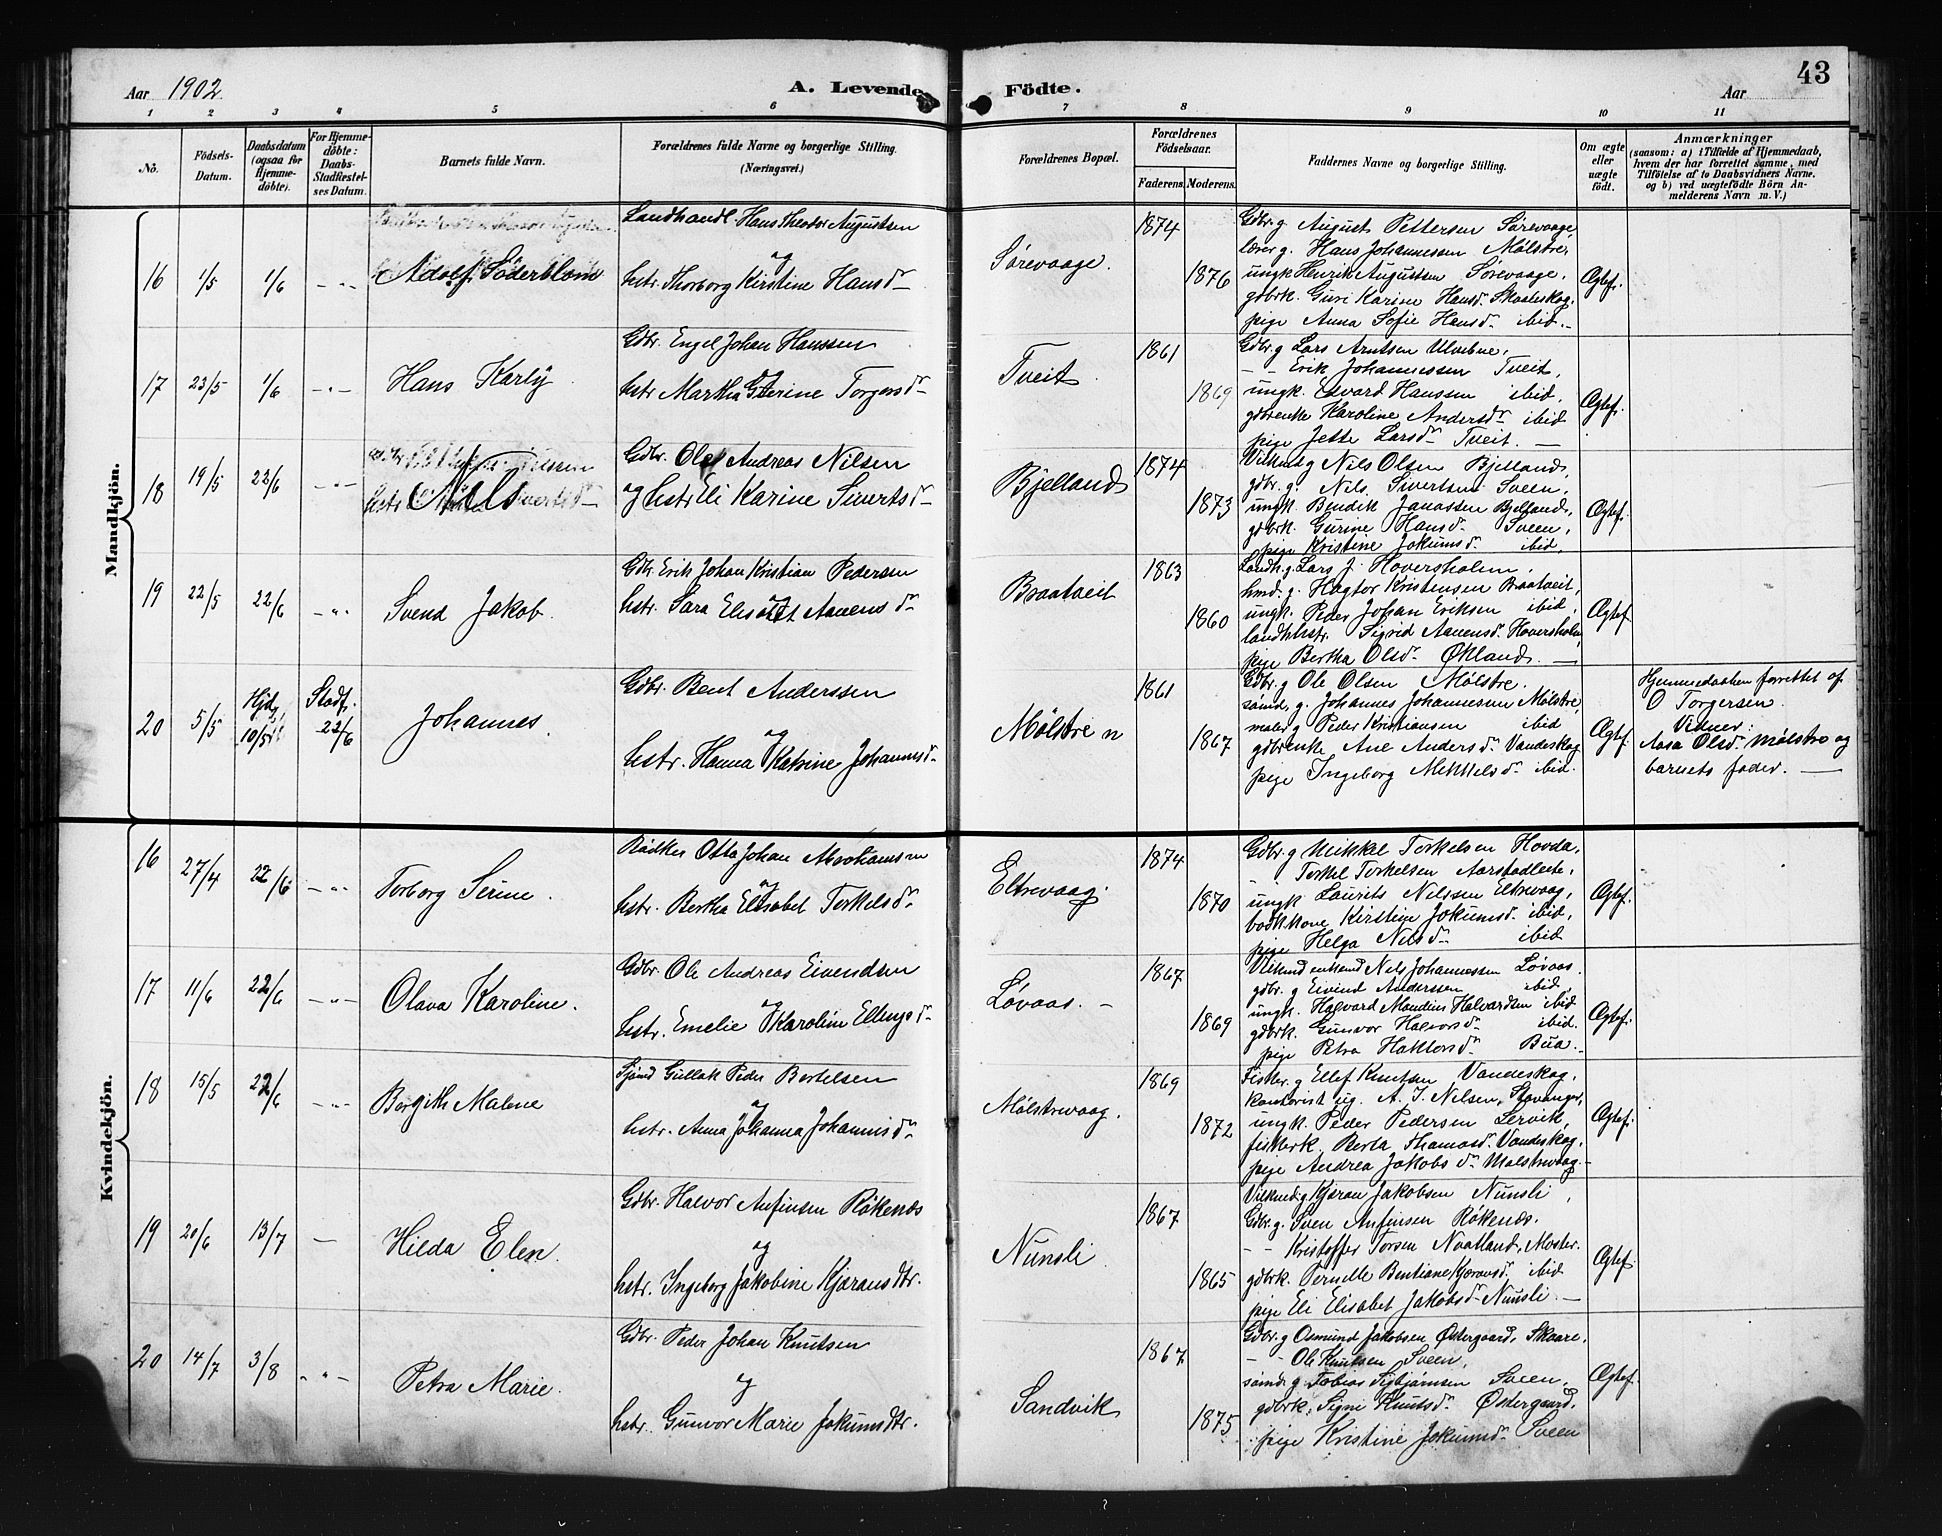 43
Aar 1902
A. Levende Födte.
Aar
1 2 3 4 5 6 7 8 9 10 11
No.
Födsels-Datum.
Daabsdatum (ogsaa for Hjemme-döbte).
For Hjemme-döbte: Daabs-Stadfæstel-ses Datum.
Barnets fulde Navn.
Forældrenes fulde Navne og borgerlige Stilling.
(Næringsvei.)
Forældrenes Bopæl.
Forældrenes Födselsaar.
Faderens. Moderens.
Faddernes Navne og borgerlige Stilling.
Om ægte eller uægte födt.
Anmærkninger
(saasom: a) i Tilfælde af Hjemmedaab, hvem der har forrettet samme, med Tilföielse af to Daabsvidners Navne. og b) ved uægtefödte Börn Anmelderens Navn m. V.)
Mandkjön.
16 1/5 1/6 - " -
Adolf Söderblom
Landhandl Hans Theodor Augustsen
og
hstr. Thorborg Kirstine Hansdr
Sørevaage.
1874
1876
Gdbr. g. August Pettersen Sørevaage,
lærer g. Hans Johannessen Mølstre,
ungk Henrik Augustsen Sørevaage.
gdbrk. Guri Karine Hansdr Skaaleskog,
pige Anna Sofie Hansdr ibid.
Ægtef.
17 23/5 1/6 - " -
Hans Karly
Gdbr. Engel Johan Hanssen
hstr Martha Gurine Torgersdr
Tveit
1861
1869
Gdbr. g Lars Arntsen Ulvene,
- - Erik Johannessen Tveit,
ungk. Edvard Hanssen ibid,
gdbrenke Karoline Andersdr ibid
pige Jette Larsdr Tveit.
Ægtef.
18 19/5 22/6 - " -
Nils
Gdbr. Ole Andreas Nilsen
og hstr Eli Karine Sivertsdr
Bjelland
1874
1873
Vilkmd g Nils Olsen Bjelland,
gdbr. g. Nils Sivertsen Sveen,
ungk. Bendik Janassen Bjelland,
gdbrk. Gurine Hansdr Sveen,
pige Kristine Jokumsdr ibid.
Ægtef.
19 22/5 22/6 - " -
Svend Jakob.
Gdbr. Erik Johan Kristian Pedersen
hstr. Sara Elisabet Aanensdr
Braatveit
1863
1860
Landh. g. Lars J. Hoversholm,
hmd. g. Hagtor Kristensen Braatveit,
ungk. Peder Johan Eriksen ibid,
landhhstr. Sigrid Aanensdr Hoversholm,
pige Bertha Olsdr Økland.
Ægtef
20 5/5 Hjd. 10/5 Stadf. 22/6
Johannes.
Gdbr. Bent Anderssen
og
hstr. Hanna Katrine Johannsdr
Mølstre n
1861
1867
Gdbr. g Ole Olsen Mølstre.
sømd. g. Johannes Johannessen Mølstre,
maler g Peder Kristiansen ibid
gdbrenke Ane Andersdr Vandeskog
pige Ingeborg Mikkelsdr ibid.
Ægtef.
Hjemmedaaben forrettet af
O Torgersen.
Vidner:
Aasa Olsdr Mølstre og
barnets fader.
Kvindekjön.
16 27/4 22/6 - " -
Torborg Serine.
Rødker Otto Johan Abrahamsen
og
hstr. Bertha Elisabet Torkelsdr
Eltrevaag.
1874
1870
Gdbr. g Mikkel Torkelsen Hovda,
- Torkel Torkelsen Aarstadleite,
ungk Laurits Nilssen Eltrevaag,
bødkkone Kirstine Jokumsdr ibid,
pige Helga Nilsdr ibid
Ægtef.
17 11/6 22/6 - " -
Olava Karoline.
Gdbr. Ole Andreas Eivendsen
og
hstr. Emelie Karoline Ellingsdr
Løvaas.
1867
1869
Vilkmd enkemd Nils Johannessen Løvaas.
gdbr. g Eivind Anderssen ibid,
ungk. Halvard Mandius Halvardsen ibid
gdbrk. Gunvor Halvorsdr ibid.
pige Petra Haktorsdr Bua.
Ægtef.
18 15/5 22/6 - " -
Borgith Malene
Sjømd Gullak Peder Bertelsen
og
hstr. Anna Johanna Johannisdr
Mølstrevaag.
1869
1872
Fisker. g Ellef Knutsen Vandeskog,
kontorist ug. A. I. Nilsen, Stavanger,
ungk. Peder Pedersen Lervik,
fiskerk. Berta Thomasdr Vandeskog,
pige Andrea Jakobsdr Mølstrevaag.
Ægtef.
19 20/6 13/7 -
Hilda Elen.
Gdbr. Halvor Anfinsen Røkenes
og
hstr. Ingeborg Jakobine Kjøransdtr.
Nunsli
1867
1865
Vilkmd. g Kjøran Jakobsen Nunsli,
Gdbr. g. Sven Anfinsen Røkenes.
- - Kristoffer Torsen Naatland, Moster.
gdbrk. Pernelle Bentiane Kjøransdr ibid
pige Eli Elisabet Jakobsdr Nunsli.
Ægtef.
20 14/7 3/8 - " -
Petra Marie.
Gdbr. Peder Johan Knutsen
og
hstr. Gunvor Marie Jokumsdtr.
Sandvik
1867
1875
Gdbr. g Osmund Jakobsen Østergaard, Skaare.
- - Ole Knutsen Sveen,
sømd. g Tobias Sigbjørnsen Sveen,
gdbrk. Signi Knutsdr Østergaard.
pige Kristine Jokumsdr Sveen
Ægtef.